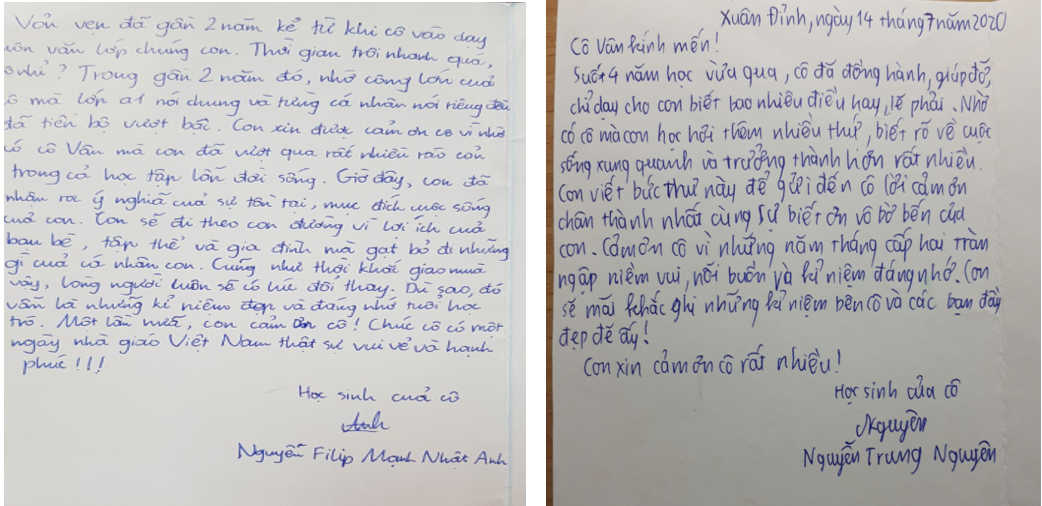 Vỏn vẹn đã gần 2 năm kể từ khi cô vào dạy
môn văn lớp chúng con. Thời gian trôi nhanh quá,
cô nhỉ? Trong gần 2 năm đó, nhờ công lớn của
cô mà lớp a1 nói chung và từng cá nhân nói riêng đều
đã tiến bộ vượt bậc. Con xin được cảm ơn cô vì nhờ
có cô Vân mà con đã vượt qua rất nhiều rào cản
trong cả học tập lẫn đời sống. Giờ đây, con đã
nhận ra ý nghĩa của sự tồn tại, mục đích cuộc sống
của con. Con sẽ đi theo con đường vì lợi ích của
bạn bè, tập thể và gia đình mà gạt bỏ đi những
gì của cá nhân con. Cũng như thời khắc giao mùa
vậy, lòng người luôn sẽ có lúc đổi thay. Dù sao, đó
vẫn là những kỉ niệm đẹp và đáng nhớ tuổi học
trò. Một lần nữa, con cảm ơn cô! Chúc cô có một
ngày nhà giáo Việt Nam thật sự vui vẻ và hạnh
phúc!!!
Học sinh của cô
Anh
Nguyễn Filip Mạnh Nhật Anh
Xuân Đỉnh, ngày 14 tháng 7 năm 2020
Cô Vân kính mến!
Suốt 4 năm học vừa qua, cô đã đồng hành, giúp đỡ,
chỉ dạy cho con biết bao nhiêu điều hay, lẽ phải. Nhờ
có cô mà con học hỏi thêm nhiều thứ, biết rõ về cuộc
sống xung quanh và trưởng thành hơn rất nhiều.
Con viết bức thư này để gửi đến cô lời cảm ơn
chân thành nhất cùng sự biết ơn vô bờ bến của
con. Cảm ơn cô vì những năm tháng cấp hai tràn
ngập niềm vui, nỗi buồn và kỉ niệm đáng nhớ. Con
sẽ mãi khắc ghi những kỉ niệm bên cô và các bạn đầy
đẹp đẽ ấy!
Con xin cảm ơn cô rất nhiều!
Học sinh của cô
Nguyên
Nguyễn Trung Nguyên